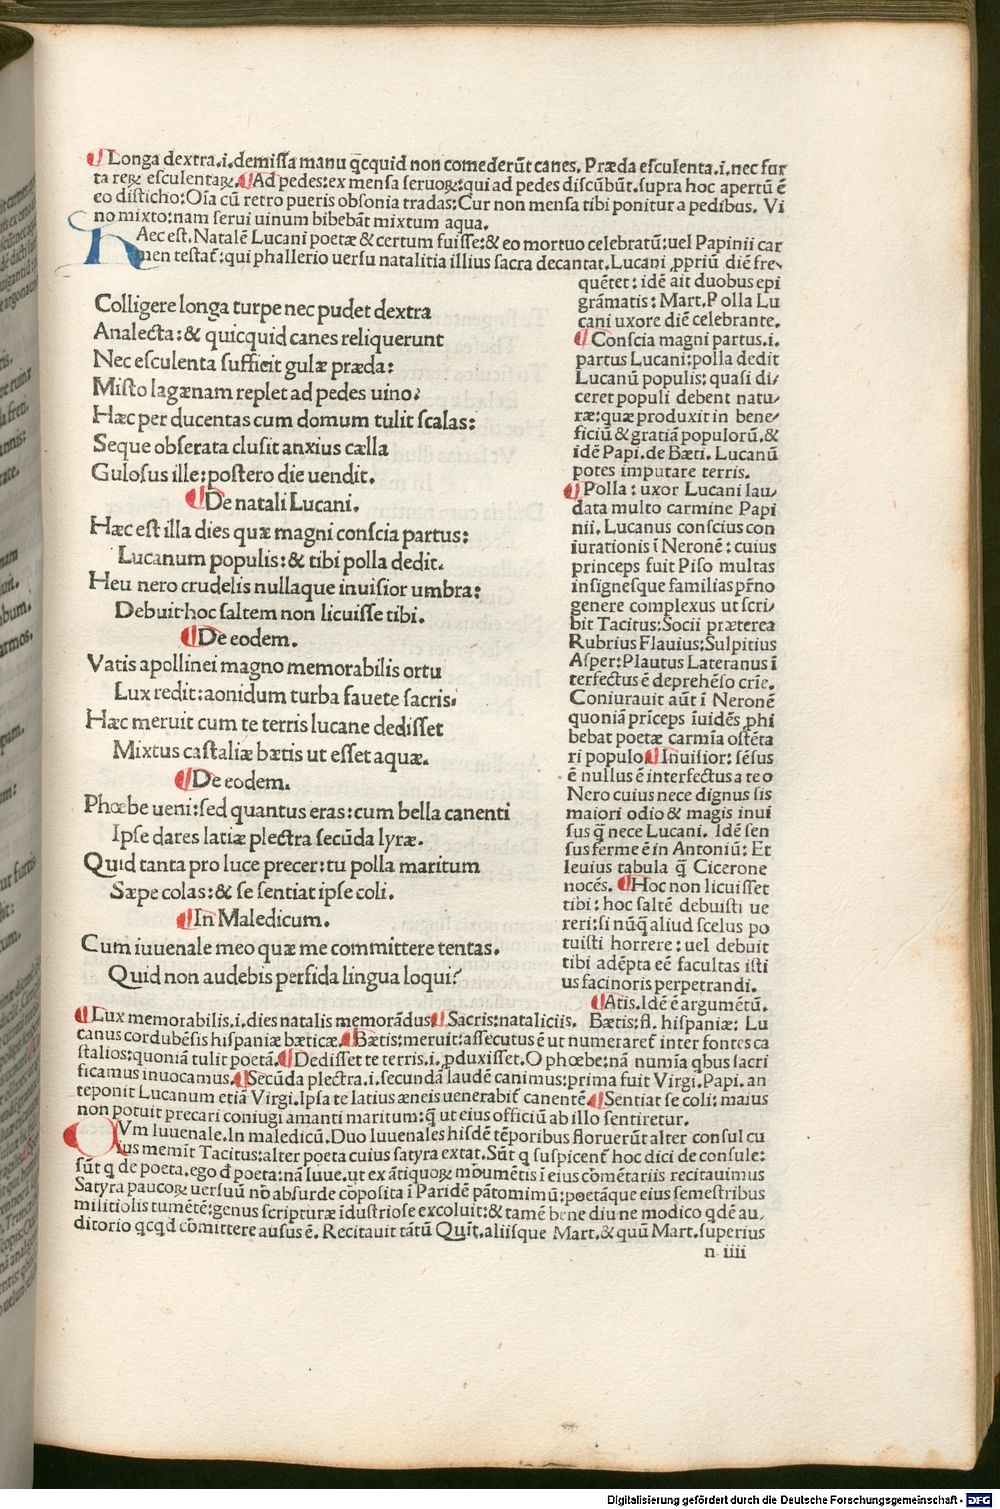 ¶ Longa dextra.i.demissa manu qcquid non comederũt canes. Præda esculenta.i.nec fur
ta reꝝ esculentaꝝ. ¶ Ad pedes:ex mensa seruoꝝ:qui ad pedes discũbũt.supra hoc apertũ ẽ
eo disticho:Oĩa cũ retro pueris obsonia tradas:Cur non mensa tibi ponitur a pedibus. Vi
no mixto:nam serui uinum bibebãt mixtum aqua.
HAec est. Natalẽ Lucani poetæ & certum fuisse:& eo mortuo celebratũ:uel Papinii car
men testat̃:qui phallerio uersu natalitia illius sacra decantat. Lucani ꝓpriũ diẽ fre
quẽtet:idẽ ait duobus epi
grãmatis: Mart. Polla Lu
cani uxore diẽ celebrante.
¶ Conscia magni partus.i.
partus Lucani:polla dedit
Lucanũ populis: quasi di/
ceret populi debent natu/
ræ:quæ produxit in bene/
ficiũ & gratiã populorũ.&
idẽ Papi.de Bæti. Lucanũ
potes imputare terris.
¶ Polla: uxor Lucani lau/
data multo carmine Papi
nii. Lucanus conscius con
iurationis ĩ Neronẽ: cuius
princeps fuit Piso multas
insignesque familias pr̃no
genere complexus ut scri/
bit Tacitus:Socii præterea
Rubrius Flauius:Sulpitius
Asper:Plautus Lateranus ĩ
terfectus ẽ deprehẽso crĩe.
Coniurauit aũt ĩ Neronẽ
quoniã prĩceps ĩuidẽs ꝓhi
bebat poetæ carmĩa ostẽta
ri populo. ¶ Inuisior: sẽsus
ẽ nullus ẽ interfectus a te o
Nero cuius nece dignus sis
maiori odio & magis inui
sus q̃ nece Lucani. Idẽ sen
sus ferme ẽ in Antoniũ: Et
leuius tabula q̃ Cicerone
nocẽs. ¶ Hoc non licuisset
tibi: hoc saltẽ debuisti ue
reri:si nũq̃ aliud scelus po
tuisti horrere: uel debuit
tibi adẽpta eẽ facultas isti
us facinoris perpetrandi.
Colligere longa turpe nec pudet dextra
Analecta:& quicquid canes reliquerunt
Nec esculenta sufficit gulæ præda:
Misto lagænam replet ad pedes uino:
Hæc per ducentas cum domum tulit scalas:
Seque obserata clusit anxius cælla
Gulosus ille:postero die uendit.
¶ De natali Lucani.
Hæc est illa dies quæ magni conscia partus:
Lucanum populis:& tibi polla dedit.
Heu nero crudelis nullaque inuisior umbra:
Debuit hoc saltem non licuisse tibi.
¶ De eodem.
Vatis apollinei magno memorabilis ortu
Lux redit:aonidum turba fauete sacris.
Hæc meruit cum te terris lucane dedisset
Mixtus castaliæ bætis ut esset aquæ.
¶ De eodem.
Phœbe ueni:sed quantus eras:cum bella canenti
Ipse dares latiæ plectra secũda lyræ.
Quid tanta pro luce precer:tu polla maritum
Sæpe colas:& se sentiat ipse coli.
¶ In Maledicum.
Cum iuuenale meo quæ me committere tentas.
Quid non audebis perfida lingua loqui?
¶ Atis. Idẽ ẽ argumẽtũ.
¶ Lux memorabilis.i.dies natalis memorãdus. ¶ Sacris:nataliciis. Bætis:fl. hispaniæ: Lu
canus cordubẽsis hispaniæ bæticæ. ¶ Bætis:meruit:assecutus ẽ ut numeraret̃ inter fontes ca
stalios:quoniã tulit poetã. ¶ Dedisset te terris.i.ꝓduxisset. O phœbe:nã numĩa qbus sacri
ficamus inuocamus. ¶ Secũda plectra.i.secundã laudẽ canimus:prima fuit Virgi. Papi. an
teponit Lucanum etiã Virgi. Ipsa te latius æneis uenerabit̃ canentẽ. ¶ Sentiat se coli: maius
non potuit precari coniugi amanti maritum:q̃ ut eius officiũ ab illo sentiretur.
CVm Iuuenale. In maledicũ. Duo Iuuenales hisdẽ tẽporibus floruerũt alter consul cu
ius memĩt Tacitus:alter poeta cuius satyra extat. Sũt q suspicent̃ hoc dici de consule:
sũt q de poeta.ego đ poeta:nã Iuue.ut ex ãtiquoꝝ mõumẽtis ĩ eius cõmẽtariis recitauimus
Satyra paucoꝝ uersuũ nõ absurde cõposita ĩ Paridẽ pãtomimũ:poetãque eius semestribus
militiolis tumẽtẽ:genus scripturæ ĩdustriose excoluit:& tamẽ bene diu ne modico qdẽ au/
ditorio qcqd cõmittere ausus ẽ. Recitauit tãtũ Quĩt.aliisque Mart.& quũ Mart.superius
n iiii
Digitalisierung gefördert durch die Deutsche Forschungsgemeinschaft - DFG